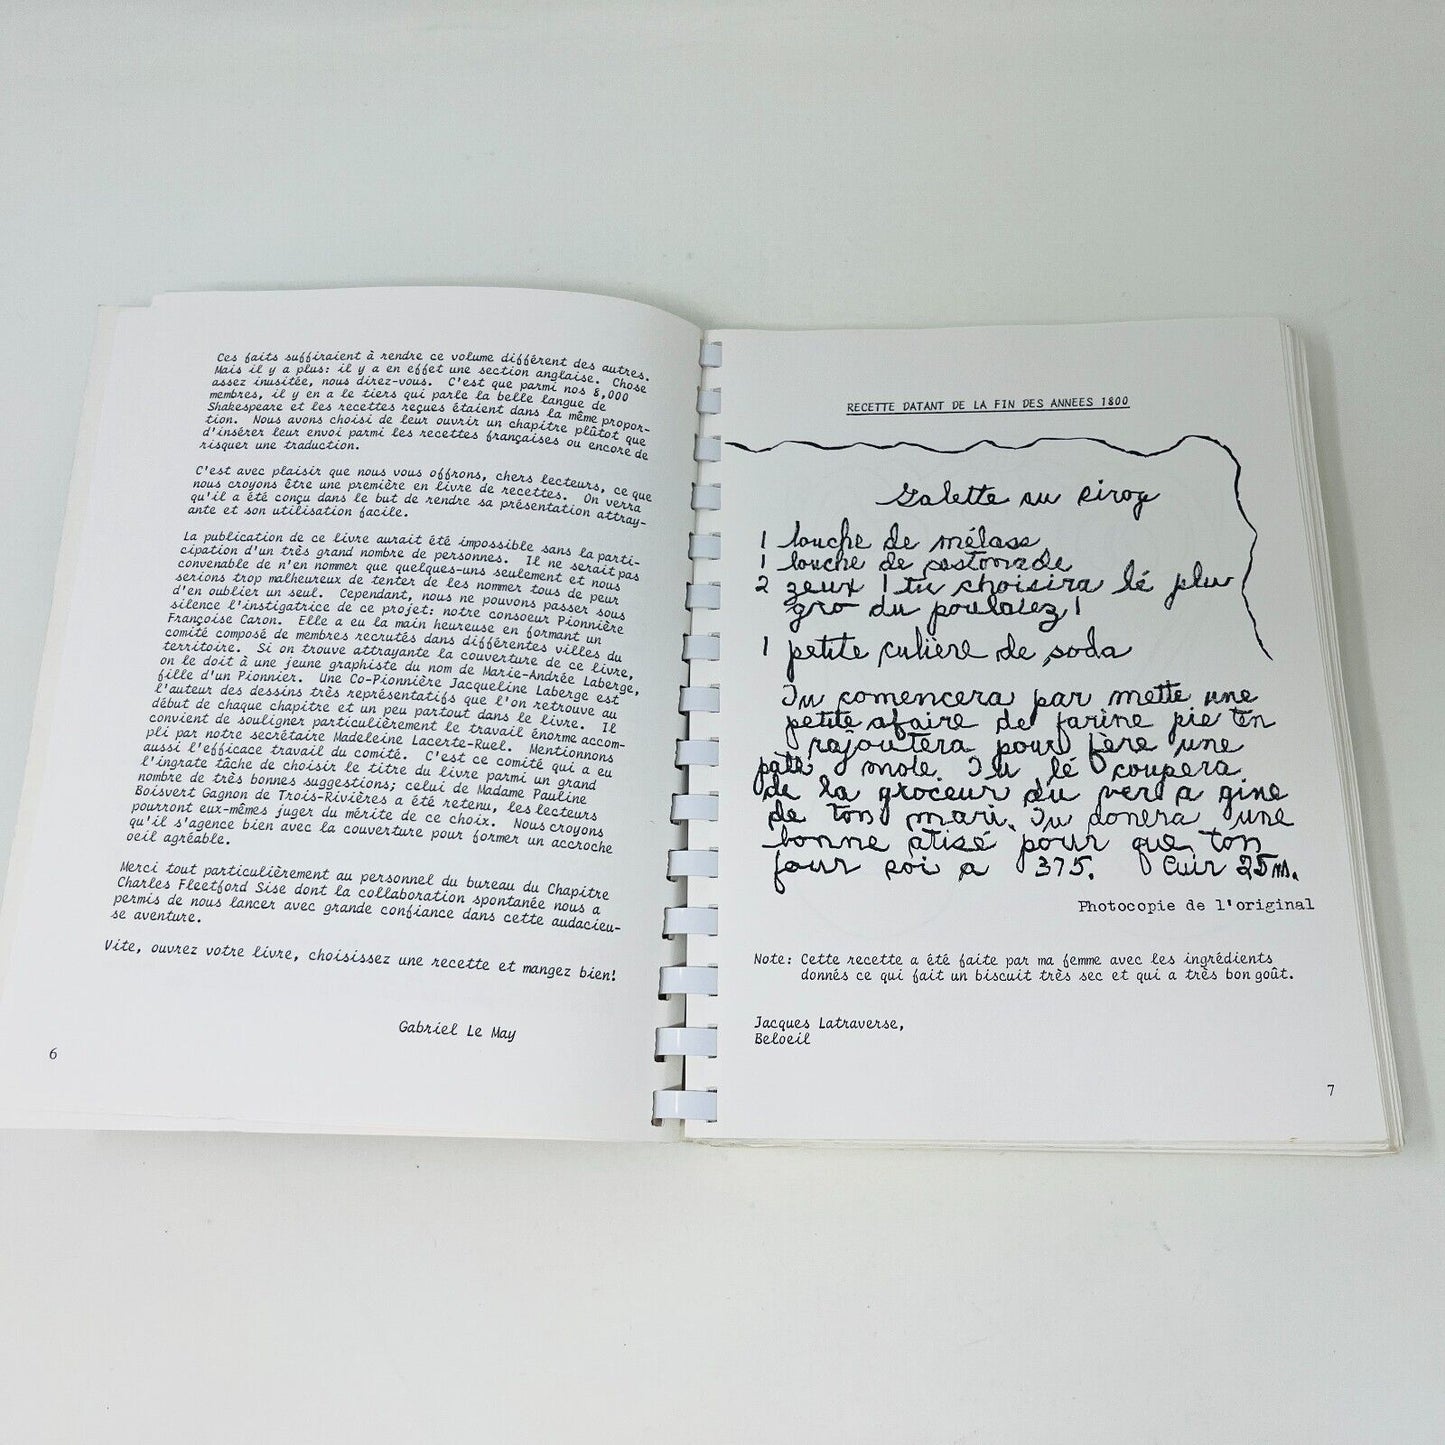 Ces faits suffiraient à rendre ce volume différent des autres.
Mais il y a plus: il y a en effet une section anglaise. Chose
assez inusitée, nous direz-vous. C'est que parmi nos 8,000
membres, il y en a le tiers qui parle la belle langue de
Shakespeare et les recettes reçues étaient dans la même propor-
tion. Nous avons choisi de leur ouvrir un chapitre plutôt que
d'insérer leur envoi parmi les recettes françaises ou encore de
risquer une traduction.
C'est avec plaisir que nous vous offrons, chers lecteurs, ce que
nous croyons être une première en livre de recettes. On verra
qu'il a été conçu dans le but de rendre sa présentation attray-
ante et son utilisation facile.
La publication de ce livre aurait été impossible sans la parti-
cipation d'un très grand nombre de personnes. Il ne serait pas
convenable de n'en nommer que quelques-uns seulement et nous
serions trop malheureux de tenter de les nommer tous de peur
d'en oublier un seul. Cependant, nous ne pouvons passer sous
silence l'instigatrice de ce projet: notre consoeur Pionnière
Françoise Caron. Elle a eu la main heureuse en formant un
comité composé de membres recrutés dans différentes villes du
territoire. Si on trouve attrayante la couverture de ce livre,
on le doit à une jeune graphiste du nom de Marie-Andrée Laberge,
fille d'un Pionnier. Une Co-Pionnière Jacqueline Laberge est
l'auteur des dessins très représentatifs que l'on retrouve au
début de chaque chapitre et un peu partout dans le livre. Il
convient de souligner particulièrement le travail énorme accom-
pli par notre secrétaire Madeleine Lacerte-Ruel. Mentionnons
aussi l'efficace travail du comité. C'est ce comité qui a eu
l'ingrate tâche de choisir le titre du livre parmi un grand
nombre de très bonnes suggestions; celui de Madame Pauline
Boisvert Gagnon de Trois-Rivières a été retenu, les lecteurs
pourront eux-mêmes juger du mérite de ce choix. Nous croyons
qu'il s'agence bien avec la couverture pour former un accroche
oeil agréable.
Merci tout particulièrement au personnel du bureau du Chapitre
Charles Fleetford Sise dont la collaboration spontanée nous a
permis de nous lancer avec grande confiance dans cette audacieu-
se aventure.
Vite, ouvrez votre livre, choisissez une recette et mangez bien!
Gabriel Le May
6
RECETTE DATANT DE LA FIN DES ANNEES 1800
Galette au sirop
1 louche de mélass
1 louche de castonade
2 zeux ! tu choisira lé plu
gro du poulalez !
1 petite culière de soda
Tu comencera par mette une
petite afaire de farine pie t'en
rajoutera pour fère une
pâte mole. Tu lé coupera
de la groceur du verr a gine
de ton mari. Tu donera une
bonne atisé pour que ton
four soi a 375. Cuir 25 m.
Photocopie de l'original
Note: Cette recette a été faite par ma femme avec les ingrédients
donnés ce qui fait un biscuit très sec et qui a très bon goût.
Jacques Latraverse,
Beloeil
7